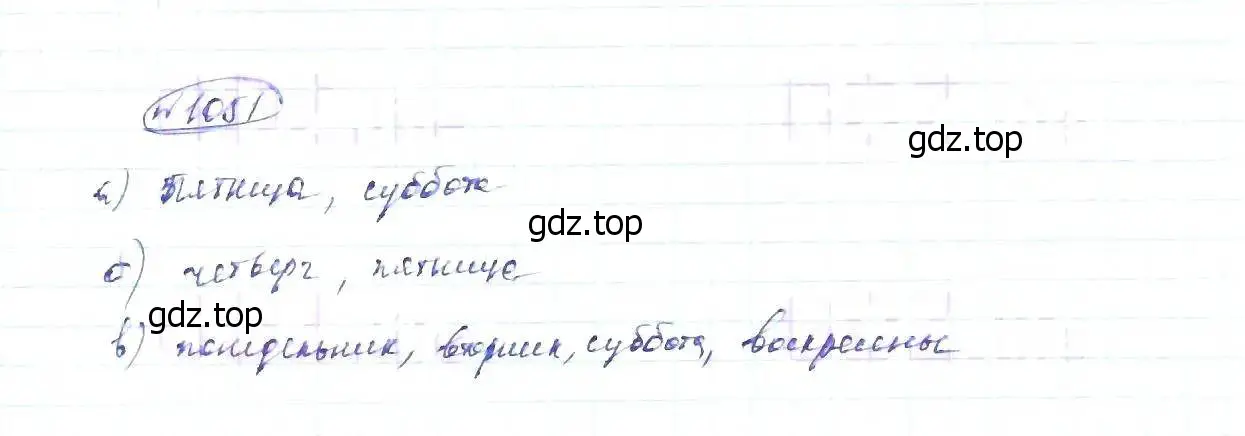 № 1051
gdz.top
а) пятница, суббота
gdz.top
б) четверг, пятница
gdz.top
в) понедельник, вторник, суббота, воскресенье